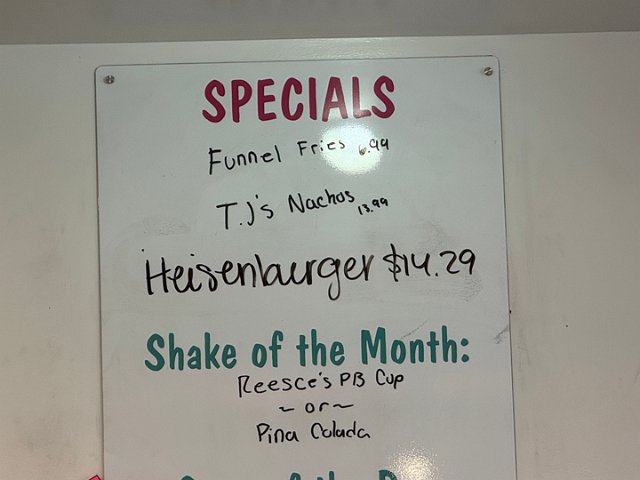 SPECIALS
Funnel Fries 6.99
T.J's Nachos 13.99
Heisenburger $14.29
Shake of the Month:
Reesce's PB Cup
~ or ~
Pina Colada